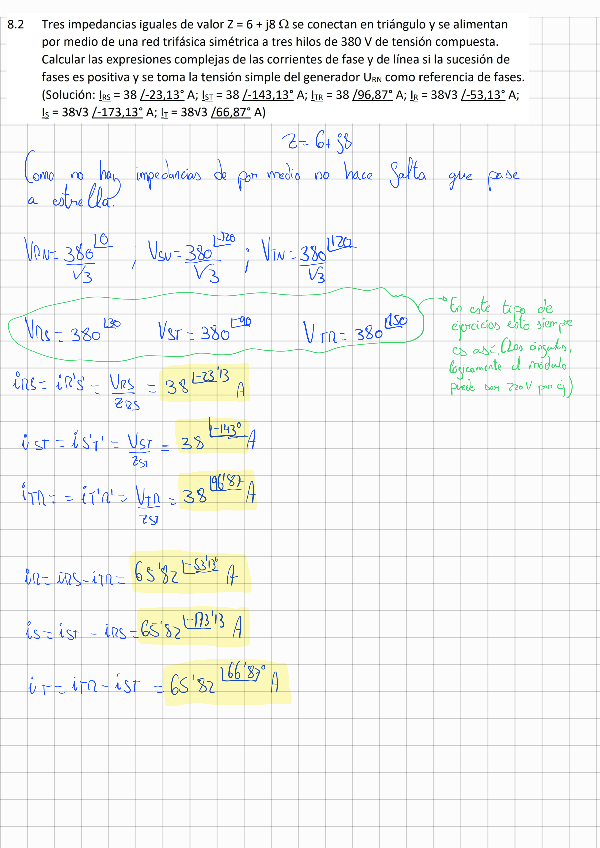 8.2 Tres impedancias iguales de valor Z = 6 + j8 Ω se conectan en triángulo y se alimentan
por medio de una red trifásica simétrica a tres hilos de 380 V de tensión compuesta.
Calcular las expresiones complejas de las corrientes de fase y de línea si la sucesión de
fases es positiva y se toma la tensión simple del generador U_RN como referencia de fases.
(Solución: I_RS = 38 /-23,13° A; I_ST = 38 /-143,13° A; I_TR = 38 /96,87° A; I_R = 38√3 /-53,13° A;
I_S = 38√3 /-173,13° A; I_T = 38√3 /66,87° A)
Z = 6 + j8
Como no hay impedancias de por medio no hace falta que pase
a estrella.
V_RN = 380∠0/√3 ; V_SN = 380∠-120/√3 ; V_TN = 380∠120/√3
V_RS = 380∠30 V_ST = 380∠-90 V_TR = 380∠150
En este tipo de
ejercicios esto siempre
es así. (Los ángulos,
logicamente el módulo
puede ser 220V por ej)
i_RS = i_R'S' = V_RS/Z_RS = 38∠-23'13 A
i_ST = i_S'T' = V_ST/Z_ST = 38∠-143° A
i_TR = = i_T'R' = V_TR/Z_ST = 38∠96'87 A
i_R = i_RS - i_TR = 65'82∠-53'13° A
i_S = i_ST - i_RS = 65'82∠-173'13 A
i_T = i_TR - i_ST = 65'82∠66'87° A